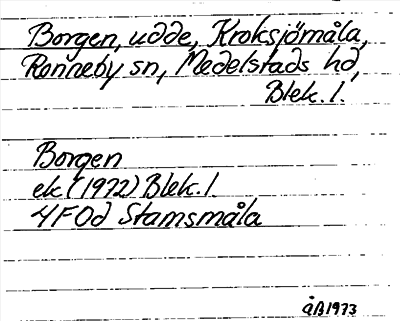 Borgen, udde, Kroksjömåla,
Ronneby sn, Medelstads hd,
Blek. l.
Borgen
ek (1972) Blek. l.
4F0d Stamsmåla
ÅB 1973